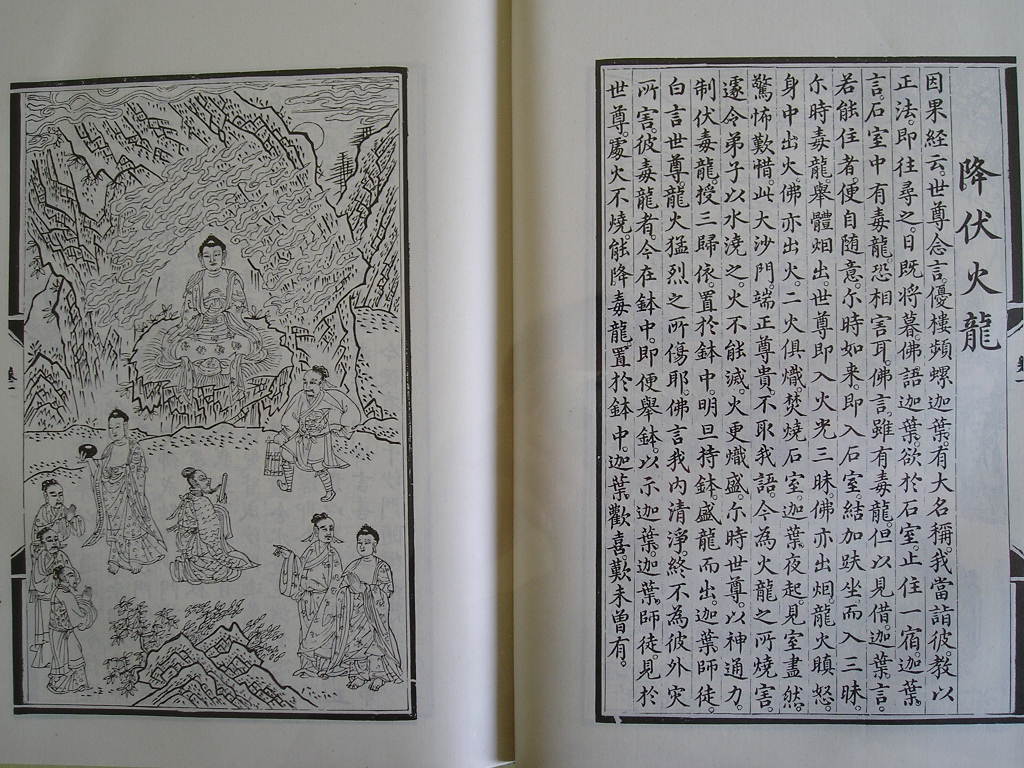 降伏火龍
因果經云。世尊念言。優樓頻螺迦葉。有大名稱。我當詣彼。教以
正法。即往尋之。日既將暮。佛語迦葉。欲於石室。止住一宿。迦葉
言。石室中有毒龍。恐相害耳。佛言。雖有毒龍。但以見借。迦葉言。
若能住者。便自随意。尔時如来。即入石室。結加趺坐而入三昧。
尔時毒龍舉體烟出。世尊即入火光三昧。佛亦出烟。龍火瞋怒。
身中出火。佛亦出火。二火俱熾。焚燒石室。迦葉夜起。見室盡然。
驚怖歎惜。此大沙門。端正尊貴。不取我語。今為火龍之所燒害。
遽令弟子以水澆之。火不能滅。火更熾盛。尔時世尊。以神通力。
制伏毒龍。授三歸依。置於鉢中。明旦持鉢。盛龍而出。迦葉師徒。
白言世尊。龍火猛烈。之所傷耶。佛言。我内清淨。終不為彼外灾
所害。彼毒龍者。今在鉢中。即便舉鉢。以示迦葉。迦葉師徒見於
世尊。處火不燒。能降毒龍。置於鉢中。迦葉歡喜。歎未曾有。